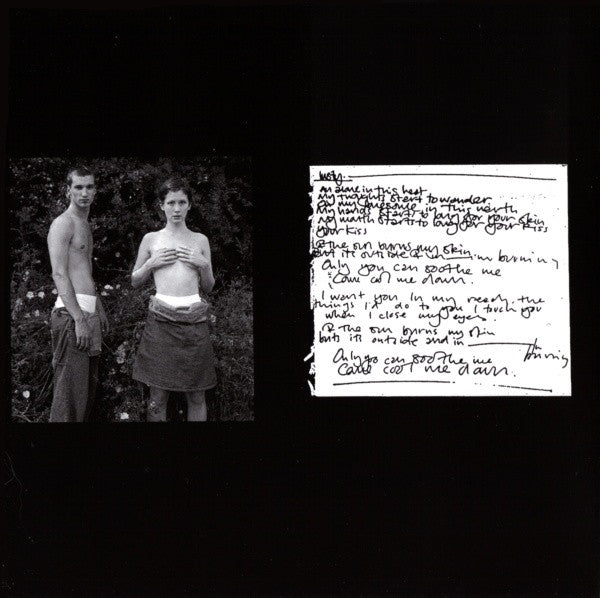 lusty
am alone in this heat
my thoughts start to wonder
on my lonesome in this
my hands starts to long for your skin
my mouth starts to long for your kiss
your kiss
the sun burns my skin
but its outside & in im burning
Only you can soothe me
Come cool me down.
I want you In my need, the
things I'd do to you I touch you
when I close my eyes.
the sun burns my skin
but its outside and in Im burning
Only you can soothe me
Come cool me down.